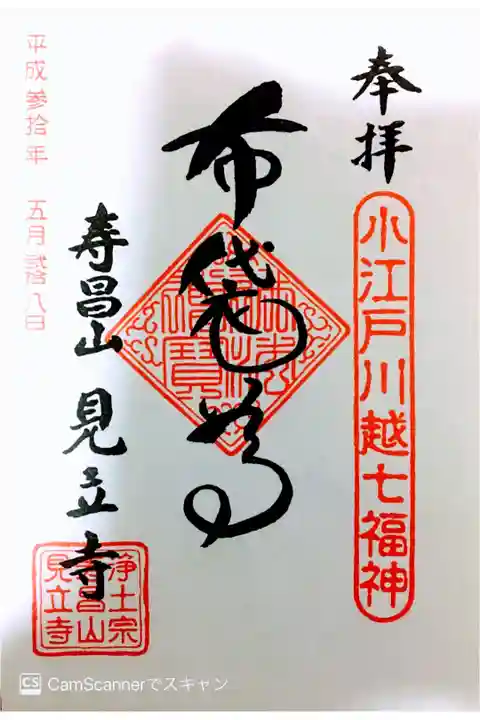 奉拝
小江戸川越七福神
布袋尊
寿昌山 見立寺
浄土宗
寿昌山
見立寺
平成参拾年 五月弐八日
CS CamScannerでスキャン